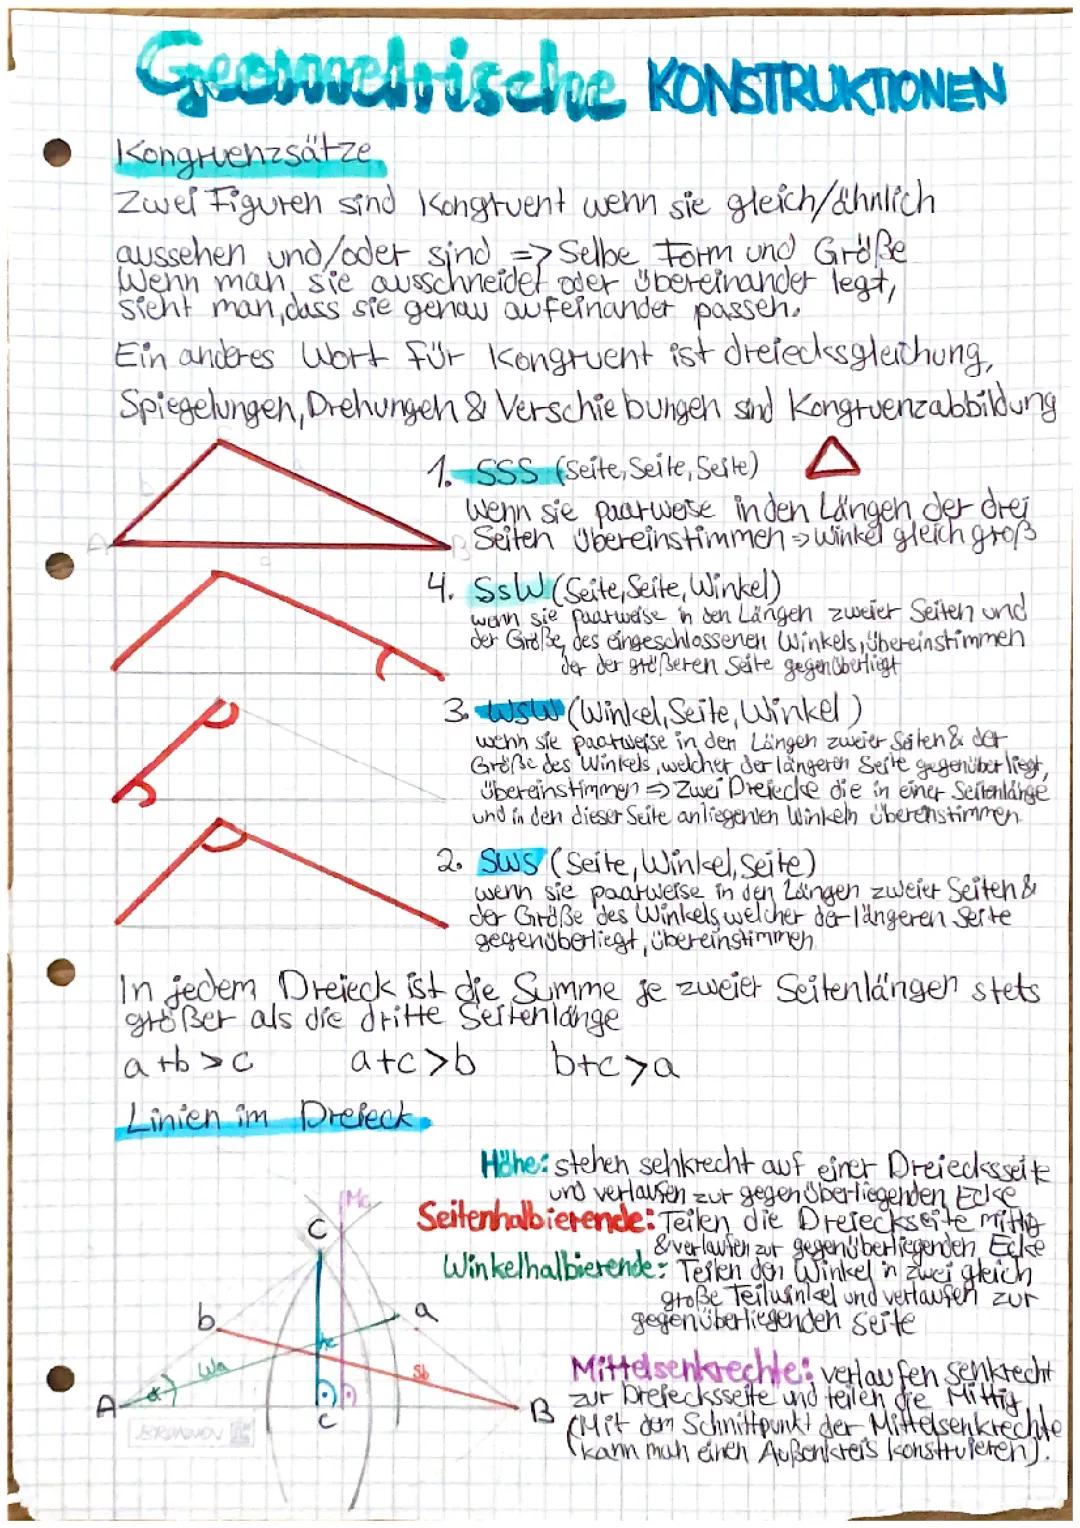 Geometrische KONSTRUKTIONEN
Kongruenzsätze
Zwei Figuren sind Kongruent wenn sie gleich/ähnlich
aussehen und/oder sind => Selbe Form und Größe
Wenn man sie ausschneidet oder übereinander legt,
sieht man, dass sie genau aufeinander passen.
Ein anderes Wort für Kongruent ist dreiecksgleichung,
Spiegelungen, Drehungen & Verschiebungen sind Kongruenzabbildung
1. SSS (Seite, Seite, Seite)
Wenn sie paarweise in den Längen der drei
Seiten übereinstimmen => Winkel gleich groß
A
B
4. SsW (Seite, Seite, Winkel)
wenn sie paarweise in den Längen zweier Seiten und
der Größe des eingeschlossenen Winkels, übereinstimmen
der der größeren Seite gegenüberliegt
3. WSW (Winkel, Seite, Winkel)
wenn sie paarweise in den Längen zweier Seiten & der
Größe des Winkels, welcher der längeren Seite gegenüber liegt,
übereinstimmen => Zwei Dreiecke die in einer Seitenlänge
und in den dieser Seite anliegenden Winkeln übereinstimmen
2. SWS (Seite, Winkel, Seite)
wenn sie paarweise in den Längen zweier Seiten &
der Größe des Winkels, welcher der längeren Seite
gegenüberliegt, übereinstimmen
In jedem Dreieck ist die Summe je zweier Seitenlängen stets
größer als die dritte Seitenlänge
a+b>c a+c>b b+c>a
Linien im Dreieck
Höhe: stehen sehkrecht auf einer Dreiecksseite
und verlaufen zur gegenüberliegenden Ecke
Seitenhalbierende: Teilen die Dreiecksseite mittig
& verlaufen zur gegenüberliegenden Ecke
Winkelhalbierende: Teilen den Winkel in zwei gleich
große Teilwinkel und verlaufen zur
gegenüberliegenden Seite
Mittelsenkrechte: verlaufen senkrecht
zur Dreiecksseite und teilen die Mittig
(Mit dem Schnittpunkt der Mittelsenkrechte
kann man einen Außenkreis konstruieren).
Mc
C
b
a
hc
Wa
Sb
α
A
B
c